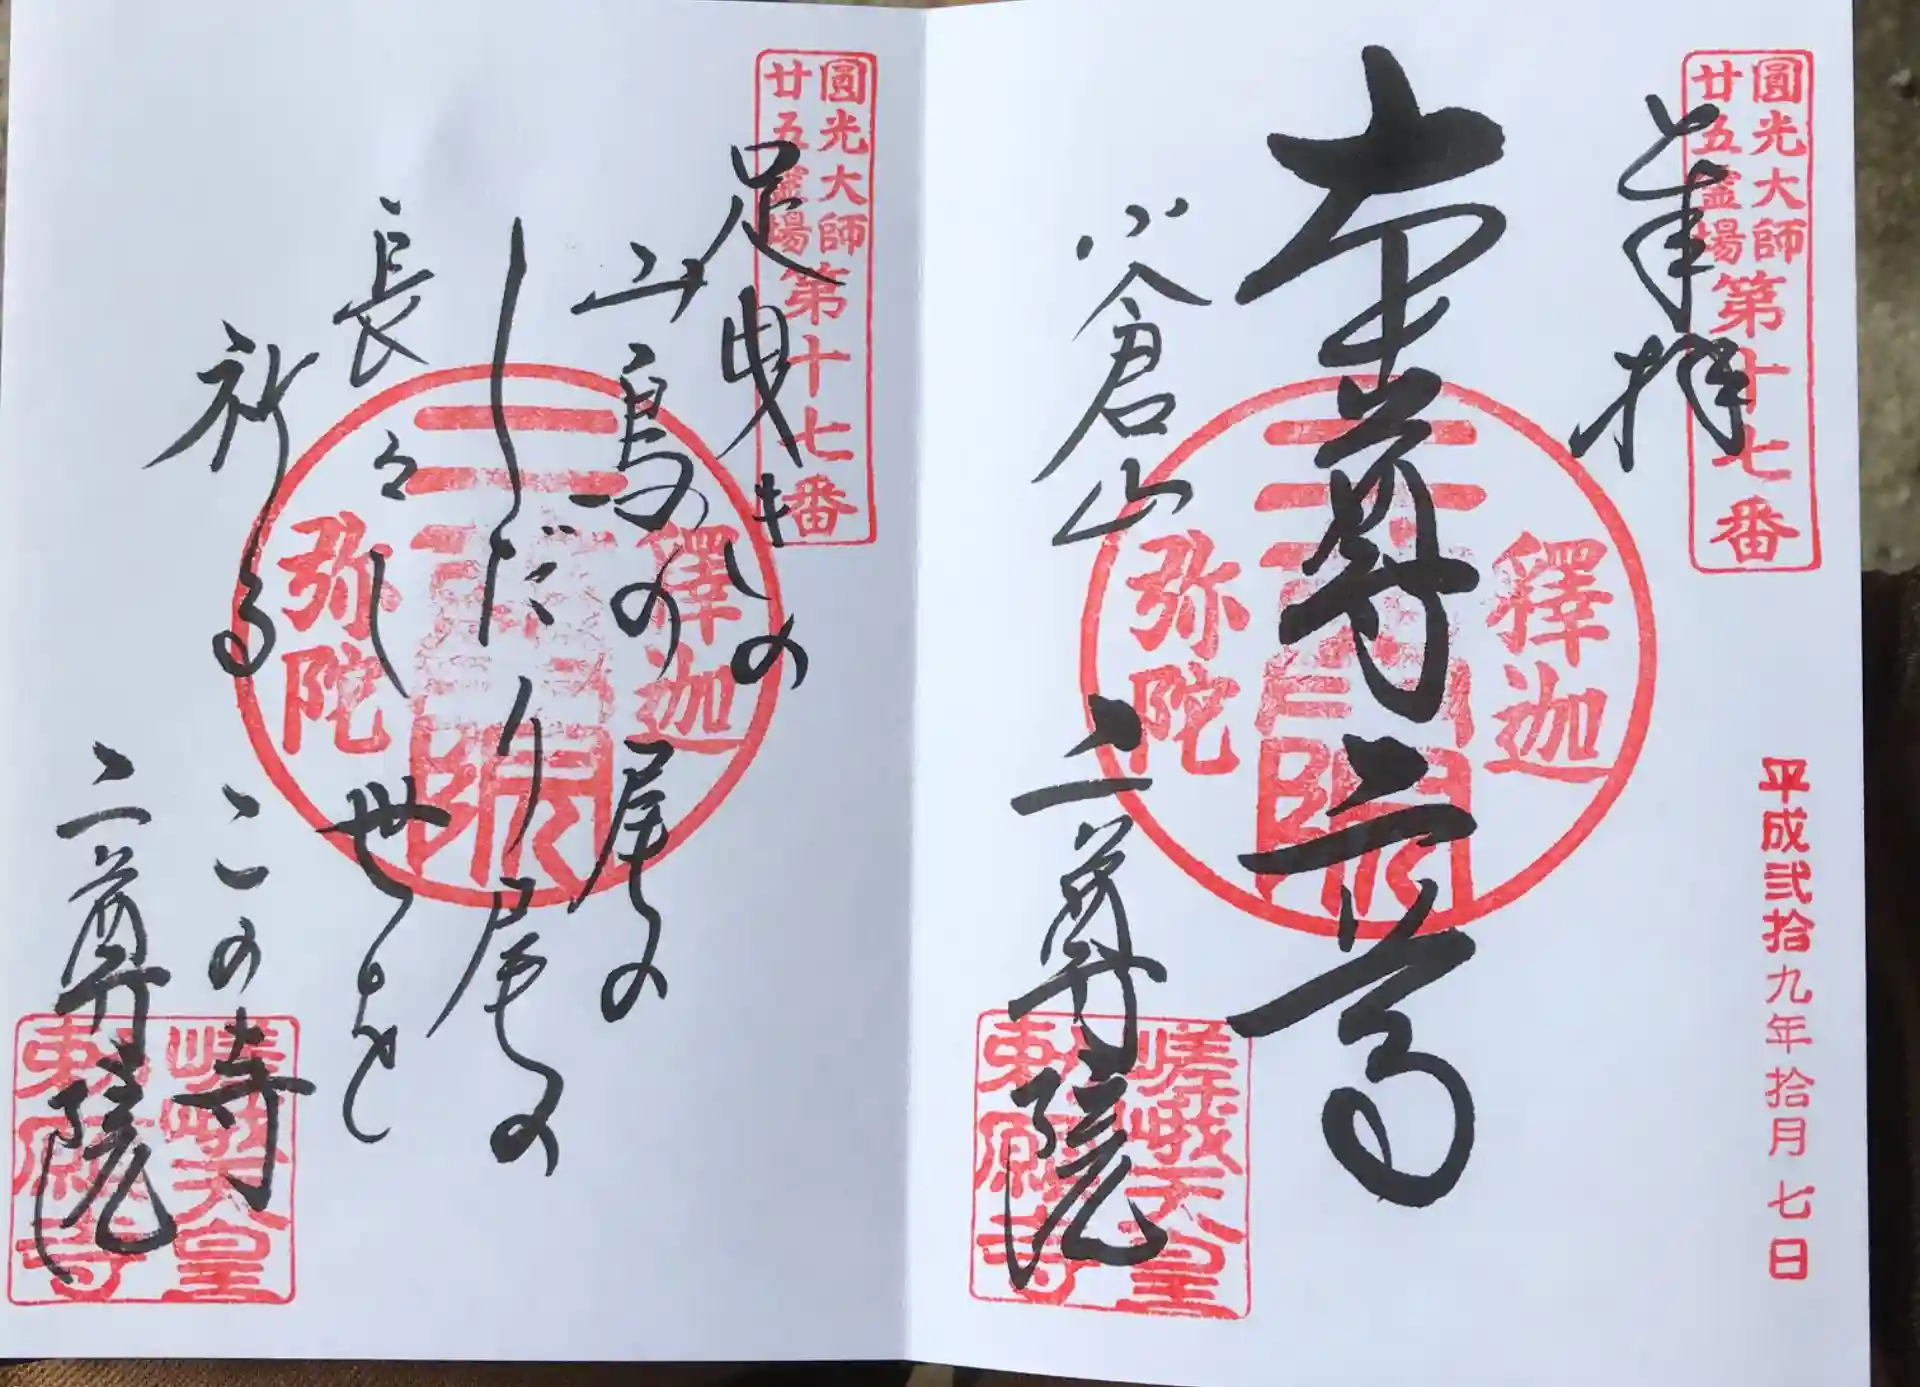 圓光大師
廿五霊場
第十七番
奉拝
平成弐拾九年拾月七日
本尊二尊
釋迦
弥陀
小倉山
二尊院
嵯峨天皇
勅願寺
圓光大師
廿五霊場
第十七番
足曳きの
山鳥の尾の
しだり尾の
長々し世を
祈るこの寺
二尊院
釋迦
弥陀
嵯峨天皇
勅願寺